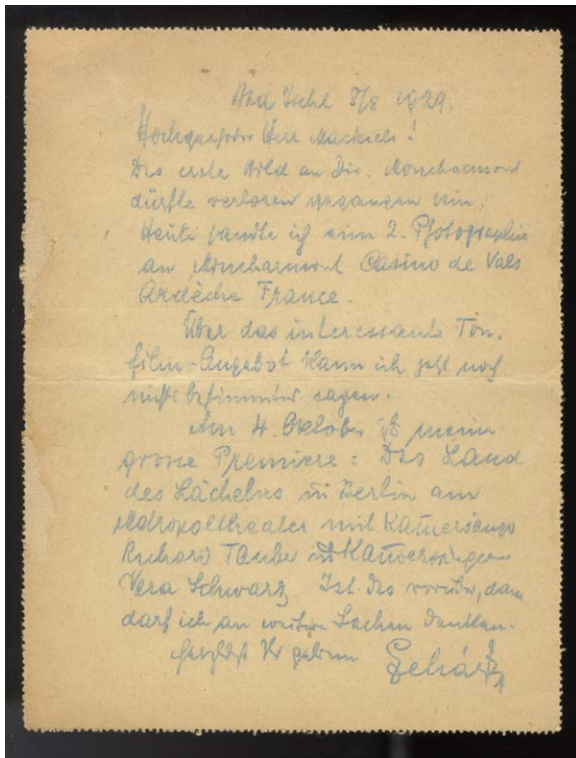 Bad Ischl 8/8 1929.
Hochgeehrter Herr
Das erste Bild an Dir. Moncharmont
dürfte verloren gegangen sein.
Heute sandte ich eine 2. Photographie
an Moncharmont Casino de Vals
Ardèche France.
Über das interessante Ton-
film-Angebot kann ich jetzt noch
nichts bestimmtes sagen.
Am 4. Oktober ist meine
grosse Premiere: Das Land
des Lächelns in Berlin am
Metropoltheater mit Kam̄ersänger
Richard Tauber und Kam̄ersängerin
Vera Schwarz. Ist das vorüber, dann
darf ich an weitere Sachen denken.
Herzlichst Ihr
Lehár